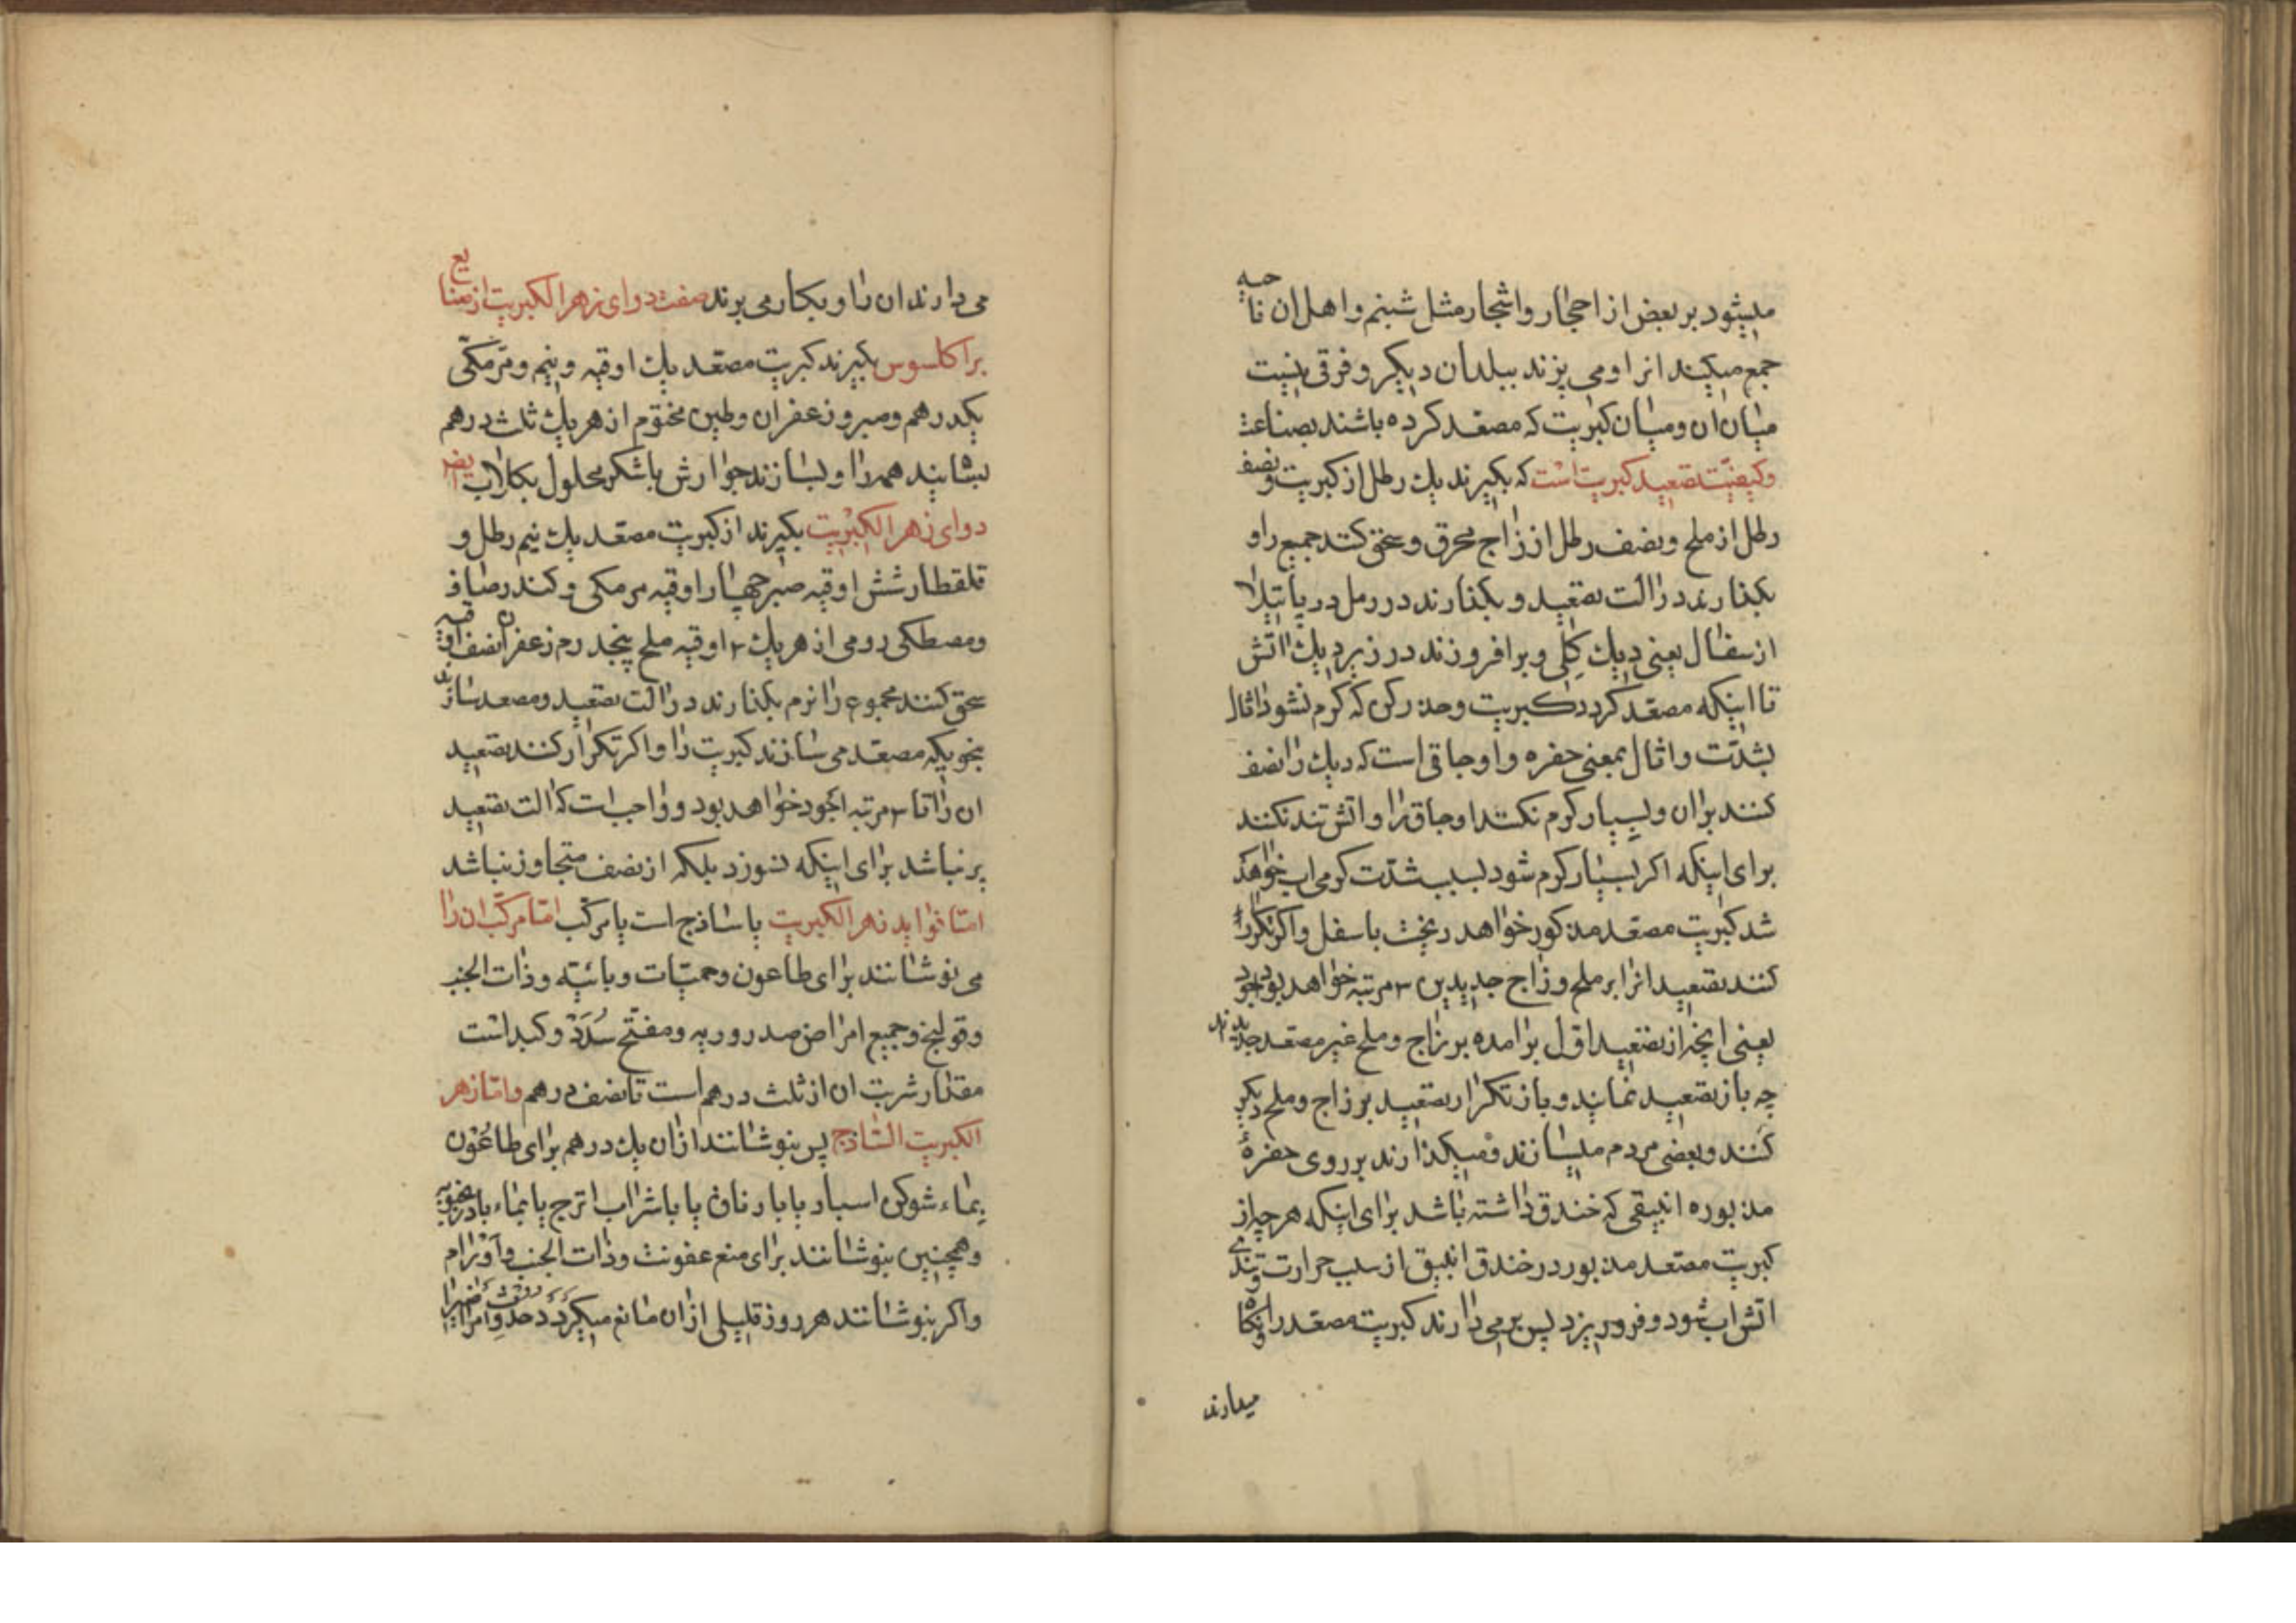 میشود بر بعض از احجار و اشجار مثل شبنم و اهل ان ناحیه
جمع میکنند انرا و می پزند ببلدان دیکر و فرقی نیست
میان ان و میان کبریت که مصعد کرده باشند بصناعت
و کیفیت تصعید کبریت است که بکیرند یك رطل از کبریت و نصف
رطل از ملح و نصف رطل از زاج محرق و سحق کنند جمیع را و
بکذارند در الت تصعید و بکذارند در رمل در پاتیلا
از سفال یعنی دیك کلی و برافروزند در زیر دیك اتش
تا اینکه مصعد کردد کبریت و حذر کن که کرم نشود اثال
بشدّت و اثال بمعنی حفره و اوجاقی است که دیك را نصف
کنند بران و بسیار کرم نکنند اوجاق را و اتش تند نکنند
برای اینکه اکر بسیار کرم شود بسبب شدّت کرمی اب خواهد
شد کبریت مصعد مذکور خواهد ریخت باسفل و اکر تکرار
کنند تصعید انرا بر ملح و زاج جدیدین ۳ مرتبه خواهد بود اجود
یعنی انچه از تصعید اوّل برامده بر زاج و ملح غیر مصعد جدید
چه باز تصعید نمایند و باز تکرار تصعید بر زاج و ملح دیکر
کنند و بعضی مردم میسازند و میکذارند بر روی حفرهٔ
مذبوره انبیقی که خندق داشته باشد برای اینکه هر چه از
کبریت مصعد مذبور در خندق انبیق از سبب حرارت و تندی
اتش اب شود و فرو ریزد پس برمی دارند کبریت مصعد را و نکاه
میدارند
می دارند ان را و بکار می برند صفت دوای زهر الکبریت از صنایع
براکلسوس بکیرند کبریت مصعد یك اوقیه و نیم و مرّ مکّی
یکدرهم و صبر و زعفران و طین مختوم از هر یك ثلث درهم
بسایند همه را و بسازند جوارش با شکر محلول بکلاب ایضر
دوای زهر الکبریت بکیرند از کبریت مصعد یك نیم رطل و
قلقطار شش اوقیه صبر چهار اوقیه مر مکی و کندر صاف
و مصطکی رومی از هر یك ۲ اوقیه ملح پنجدرم زعفران نصف اوقیه
سحق کنند مجموع را نرم بکذارند در الت تصعید و مصعد سازند
بنحویکه مصعد می سازند کبریت را و اکر تکرار کنند تصعید
ان را تا ۳ مرتبه اجود خواهد بود و واجب است که الت تصعید
پر نباشد برای اینکه نسوزد بلکه از نصف متجاوز نباشد
امّا فواید زهر الکبریت یا ساذج است یا مرکّب امّا مرکّب ان را
می نوشانند برای طاعون و حمیّات وبائیّه و ذات الجنب
و قولنج و جمیع امراض صدر و ریه و مفتّح سُدَدْ و کبد است
مقدار شربت ان از ثلث درهم است تا نصف درهم و امّا زهر
الکبریت الساذج پس بنوشانند از ان یك درهم برای طاعُون
بماء شوکن اسبار یا بارناق یا با شراب اترج یا بماء بادرنجبویه
و همچنین بنوشانند برای منع عفونت و ذات الجنب و آورام
و اکر بنوشانند هر روز قلیلی از ان مانع میکَردَد